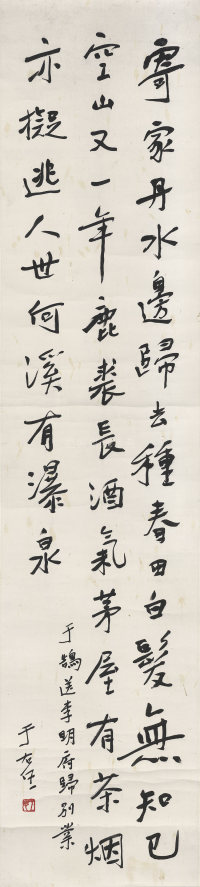 寄家丹水邊歸去種春田白髮無知己
空山又一年鹿裘長酒氣茅屋有茶烟
亦擬逃人世何溪有瀑泉
于鵠送李明府歸別業
于右任